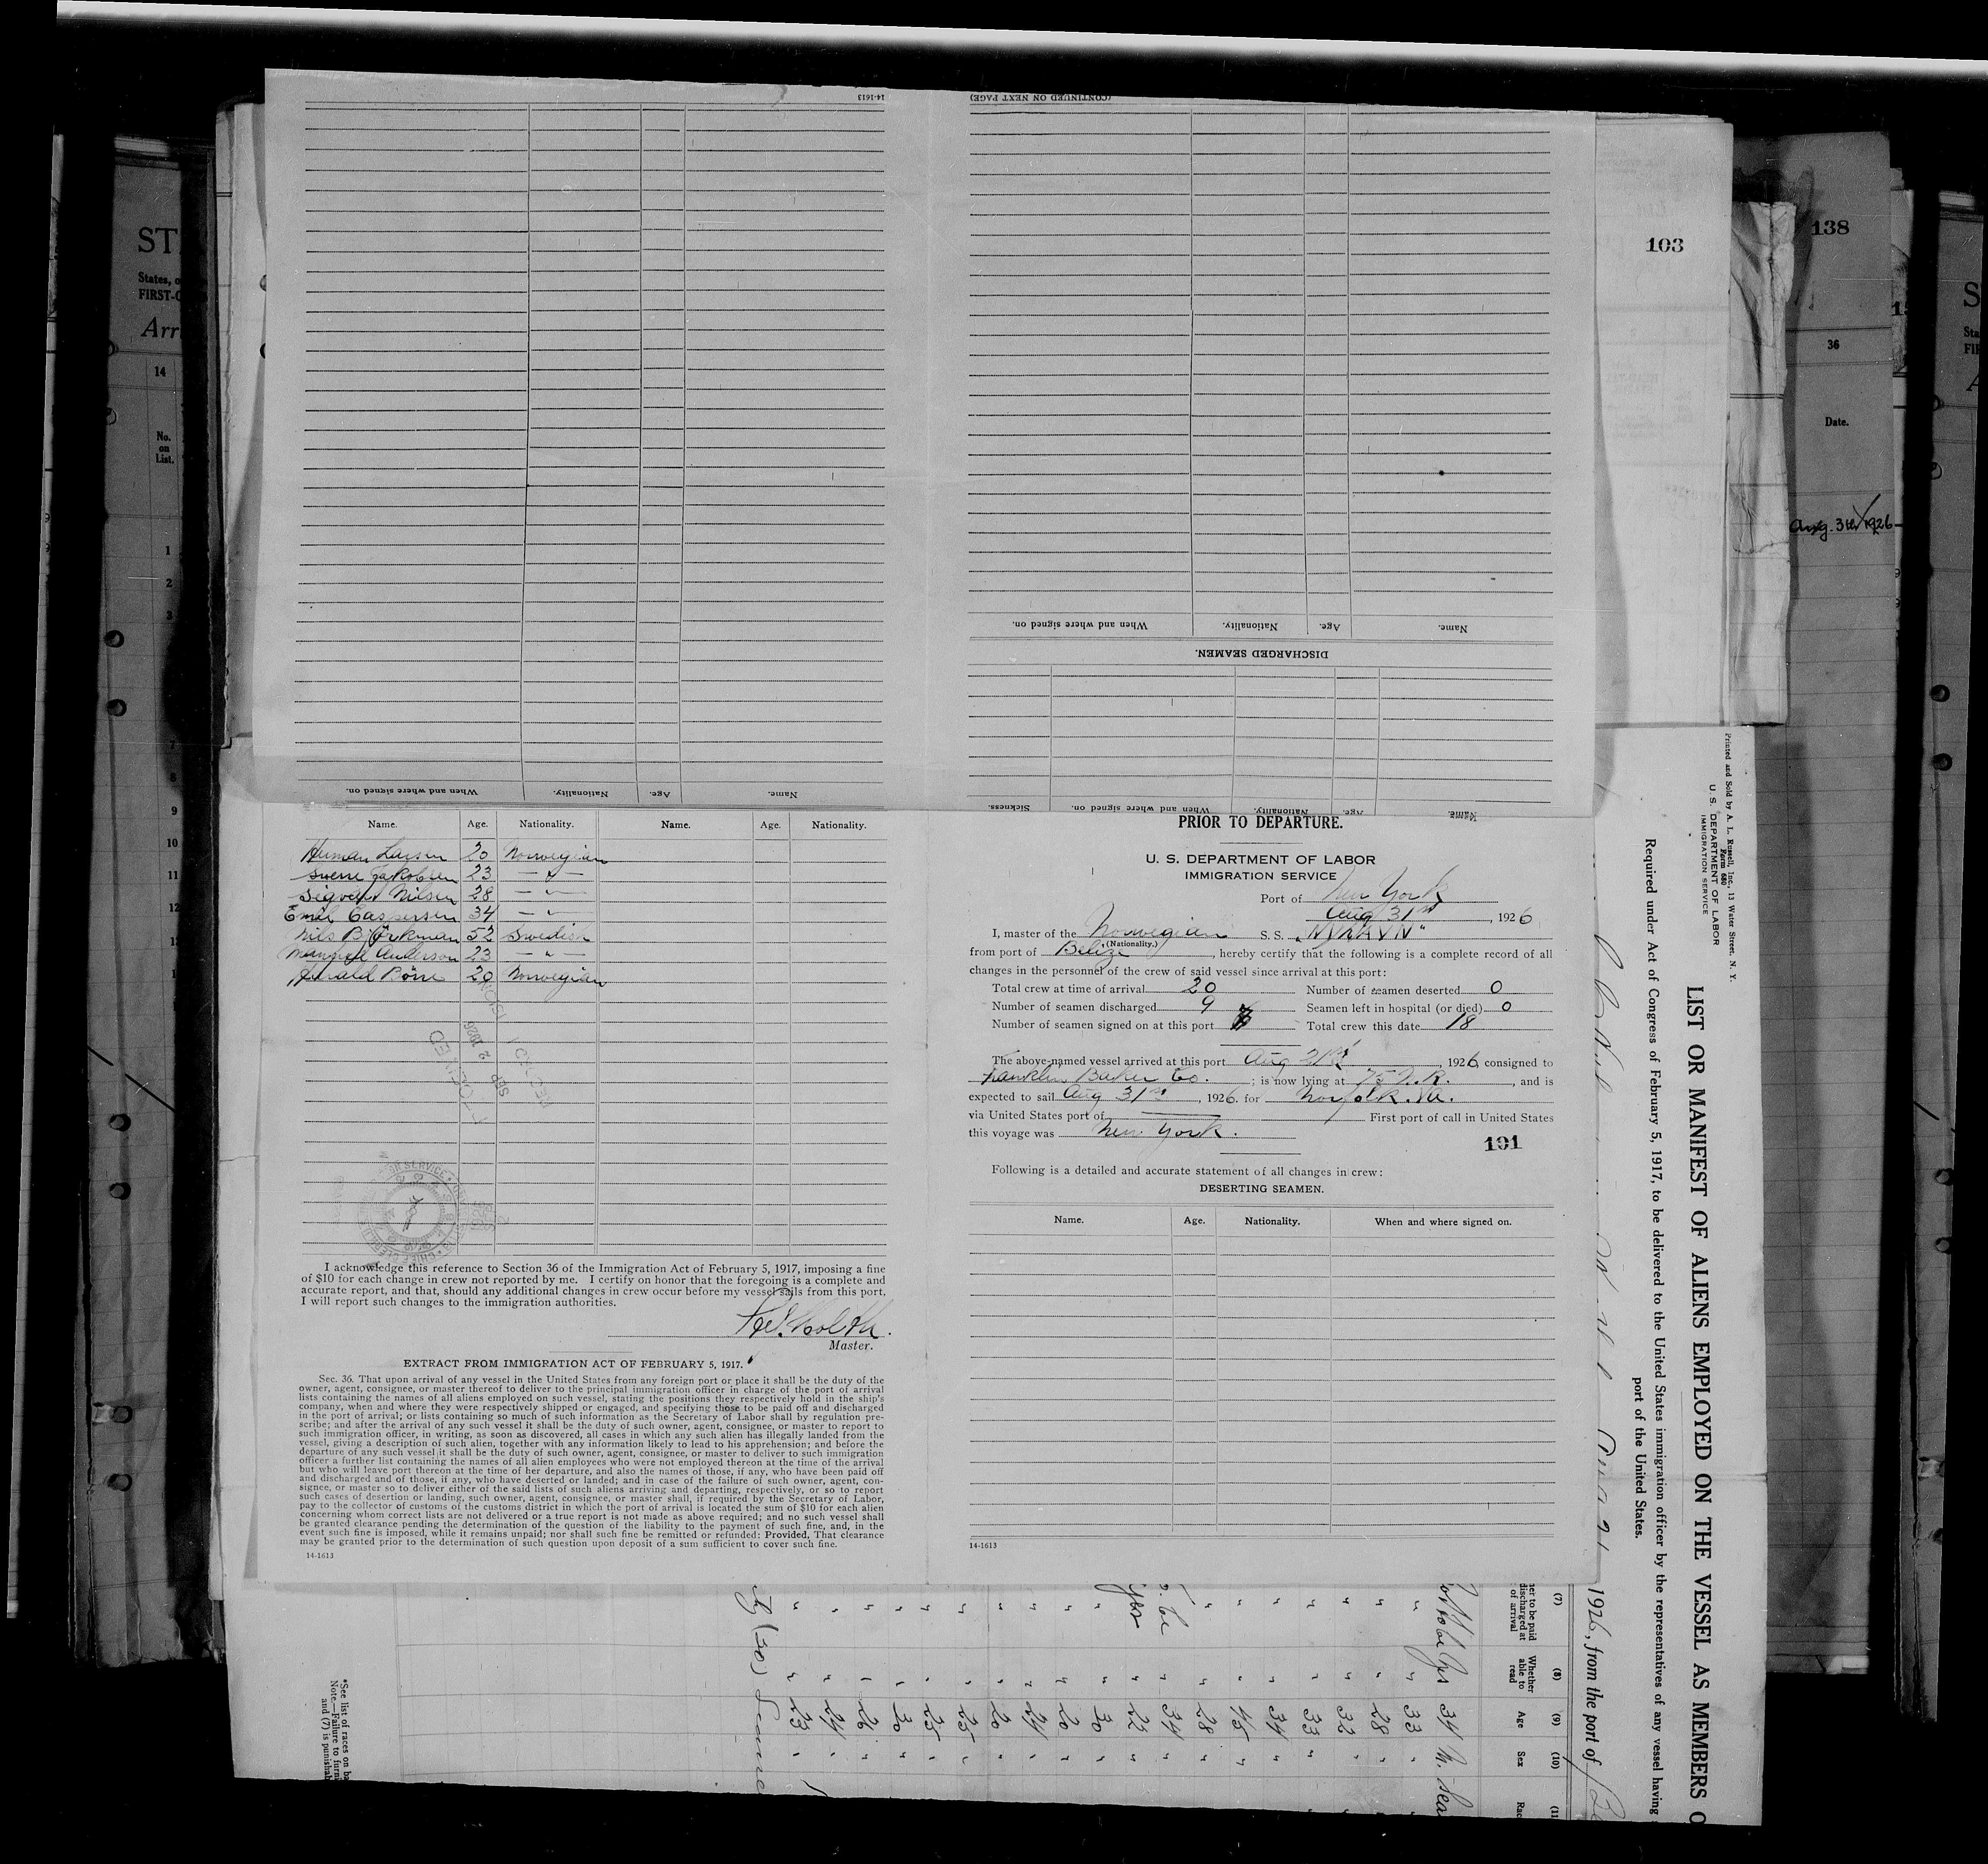 14-1613
(CONTINUED ON NEXT PAGE)
When and where signed on. Nationality. Age. Name.
DISCHARGED SEAMEN.
Sickness. When and where signed on. Nationality. Age. Name.
When and where signed on. Nationality. Age. Name.
103
138
36
Date.
Aug. 3 1926
ST
States, o
FIRST-C
Arr
14
No.
on
List.
1
2
3
7
8
9
10
11
12
Name. Age. Nationality. Name. Age. Nationality.
Herman Larsen 20 Norwegian
Sverre Jakobsen 23 — " —
Sigvald Nilsen 28 — " —
Emil Caspersen 34 — " —
Nils Björkman 52 Swedish
Anderson 23 — " —
Harald Börre 20 Norwegian
SEP 2 1926
I acknowledge this reference to Section 36 of the Immigration Act of February 5, 1917, imposing a fine
of $10 for each change in crew not reported by me. I certify on honor that the foregoing is a complete and
accurate report, and that, should any additional changes in crew occur before my vessel sails from this port,
I will report such changes to the immigration authorities.
Master.
EXTRACT FROM IMMIGRATION ACT OF FEBRUARY 5, 1917.
Sec. 36. That upon arrival of any vessel in the United States from any foreign port or place it shall be the duty of the
owner, agent, consignee, or master thereof to deliver to the principal immigration officer in charge of the port of arrival
lists containing the names of all aliens employed on such vessel, stating the positions they respectively hold in the ship's
company, when and where they were respectively shipped or engaged, and specifying those to be paid off and discharged
in the port of arrival; or lists containing so much of such information as the Secretary of Labor shall by regulation pre-
scribe; and after the arrival of any such vessel it shall be the duty of such owner, agent, consignee, or master to report to
such immigration officer, in writing, as soon as discovered, all cases in which any such alien has illegally landed from the
vessel, giving a description of such alien, together with any information likely to lead to his apprehension; and before the
departure of any such vessel it shall be the duty of such owner, agent, consignee, or master to deliver to such immigration
officer a further list containing the names of all alien employees who were not employed thereon at the time of the arrival
but who will leave port thereon at the time of her departure, and also the names of those, if any, who have been paid off
and discharged and of those, if any, who have deserted or landed; and in case of the failure of such owner, agent, con-
signee, or master so to deliver either of the said lists of such aliens arriving and departing, respectively, or so to report
such cases of desertion or landing, such owner, agent, consignee, or master shall, if required by the Secretary of Labor,
pay to the collector of customs of the customs district in which the port of arrival is located the sum of $10 for each alien
concerning whom correct lists are not delivered or a true report is not made as above required; and no such vessel shall
be granted clearance pending the determination of the question of the liability to the payment of such fine, and, in the
event such fine is imposed, while it remains unpaid; nor shall such fine be remitted or refunded: Provided, That clearance
may be granted prior to the determination of such question upon deposit of a sum sufficient to cover such fine.
14-1613
PRIOR TO DEPARTURE.
U. S. DEPARTMENT OF LABOR
IMMIGRATION SERVICE
Port of New York
Aug 31st, 1926
I, master of the Norwegian S. S.
(Nationality.)
from port of Belize, hereby certify that the following is a complete record of all
changes in the personnel of the crew of said vessel since arrival at this port:
Total crew at time of arrival 20 Number of seamen deserted 0
Number of seamen discharged 9 Seamen left in hospital (or died) 0
Number of seamen signed on at this port 7 Total crew this date 18
The above-named vessel arrived at this port Aug 21st, 1926, consigned to
Franklin Baker Co.; is now lying at 75 N.R., and is
expected to sail Aug 31st, 1926. for Norfolk. Va.
via United States port of First port of call in United States
this voyage was New York.
191
Following is a detailed and accurate statement of all changes in crew:
DESERTING SEAMEN.
Name. Age. Nationality. When and where signed on.
14-1613
Printed and Sold by A. L. Russell, Inc., 13 Water Street, N. Y.
Form 680
U. S. DEPARTMENT OF LABOR
IMMIGRATION SERVICE
LIST OR MANIFEST OF ALIENS EMPLOYED ON THE VESSEL AS MEMBERS O
Required under Act of Congress of February 5, 1917, to be delivered to the United States immigration officer by the representatives of any vessel having
port of the United States.
1926, from the port of
(7) (8) (9) (10) (11
her to be paid
discharged at
of arrival
Whether
able to
read
Age
Sex
Rac
yes 34 M.
" " 33 "
" " 28 "
" " 32 "
" " 33 "
" " 34 "
" " 45 "
" " 28 "
" 34 "
yes " 22 "
" " 30 "
" " 20 "
" " 24 "
" " 20 "
" " 25 "
" " 25 "
" " 30 "
" " 26 "
" " 24 "
" " 23 "
*See list of races on ba
Note.—Failure to furni
and (7) is punishab